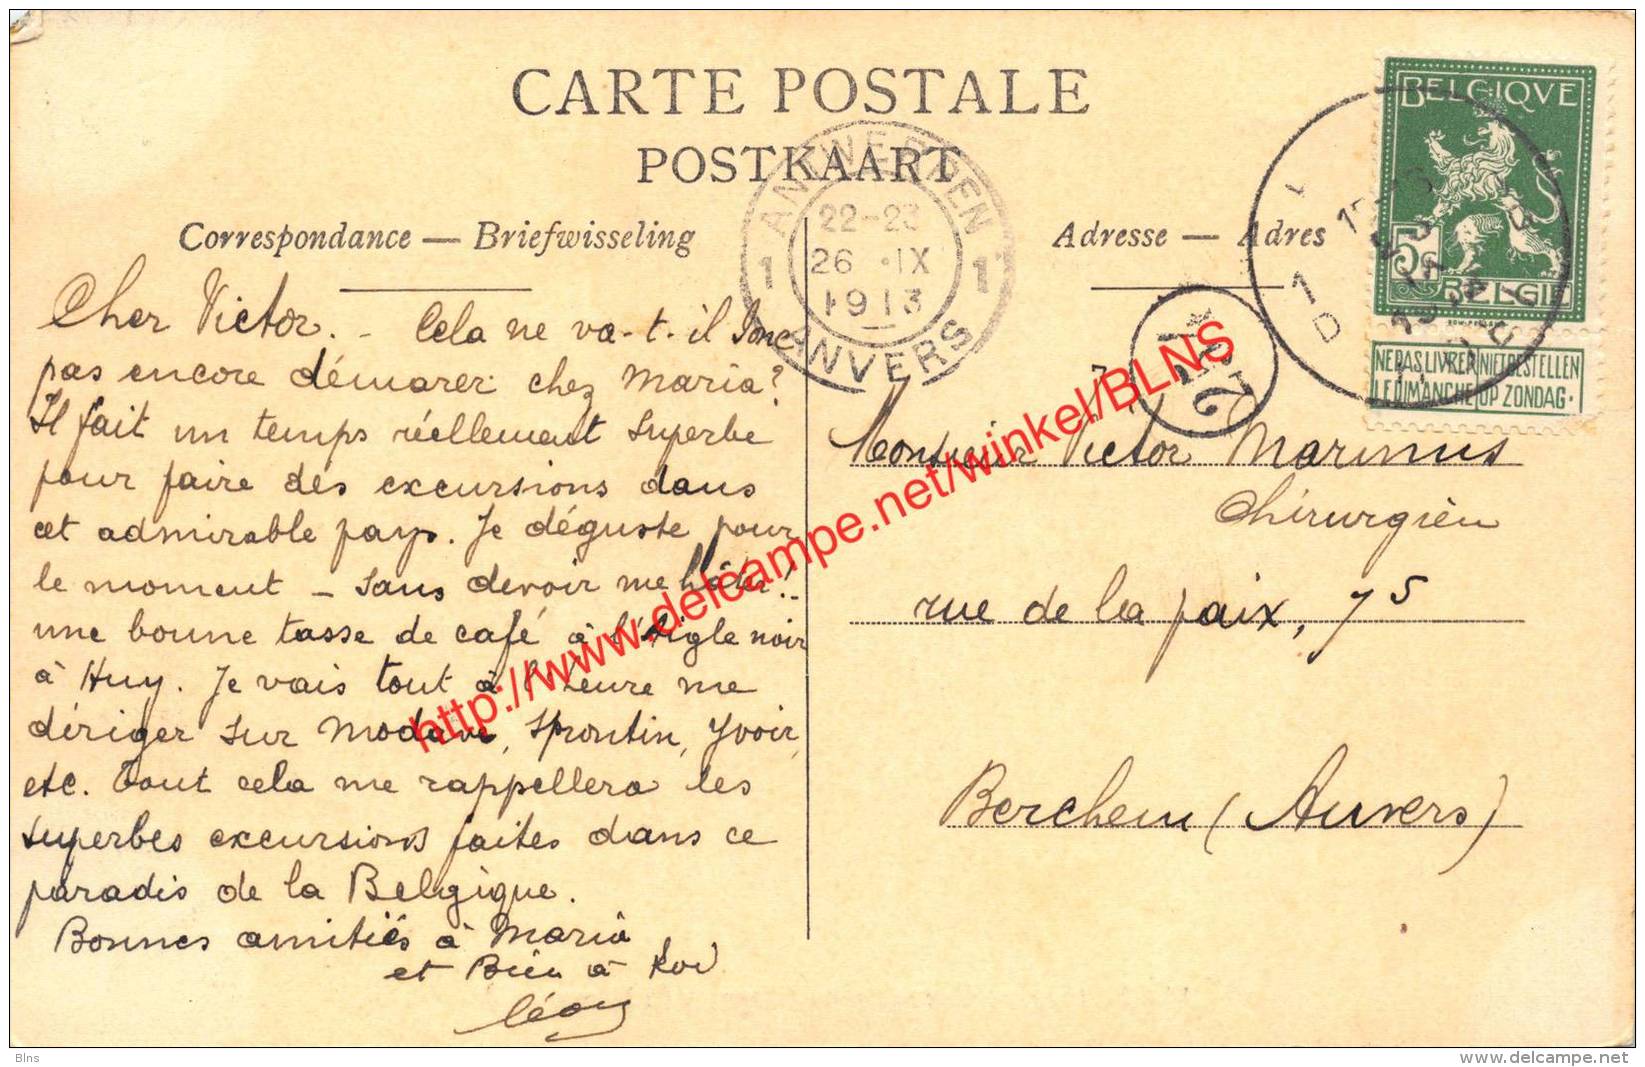 CARTE POSTALE
POSTKAART
Correspondance — Briefwisseling
Adresse — Adres
BELGIQVE
5c
BELGIE
NE PAS LIVRER NIET BESTELLEN
LE DIMANCHE OP ZONDAG.
ANTWERPEN
22-23
1 26 · IX 1
1913
ANVERS
Cher Victor. - Cela ne va-t-il donc
pas encore démarer chez Maria?
Il fait un temps réellement superbe
pour faire des excursions dans
cet admirable pays. Je déguste pour
le moment - sans devoir me hâter!
une bonne tasse de café à l'Aigle noir
à Huy. Je vais tout à l'heure me
dériger sur Modave, Sprontin, Yvoir,
etc. Tout cela me rappellera les
superbes excursions faites dans ce
paradis de la Belgique.
Bonnes amitiés à Maria
et Bien à toi
Léon
Monsieur Victor Marinus
Chirurgien
rue de la paix, 75
Berchem (Anvers)
http://www.delcampe.net/winkel/BLNS
Blns
www.delcampe.net